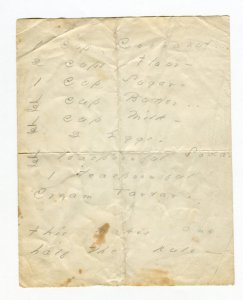 Cup
2 Cups Flour
1 Cup Sugar
Cup Butter
Cup Milk
2 Eggs
teaspoonful Soda
1 teaspoonful
Cream Tartar
this makes one
half the rule